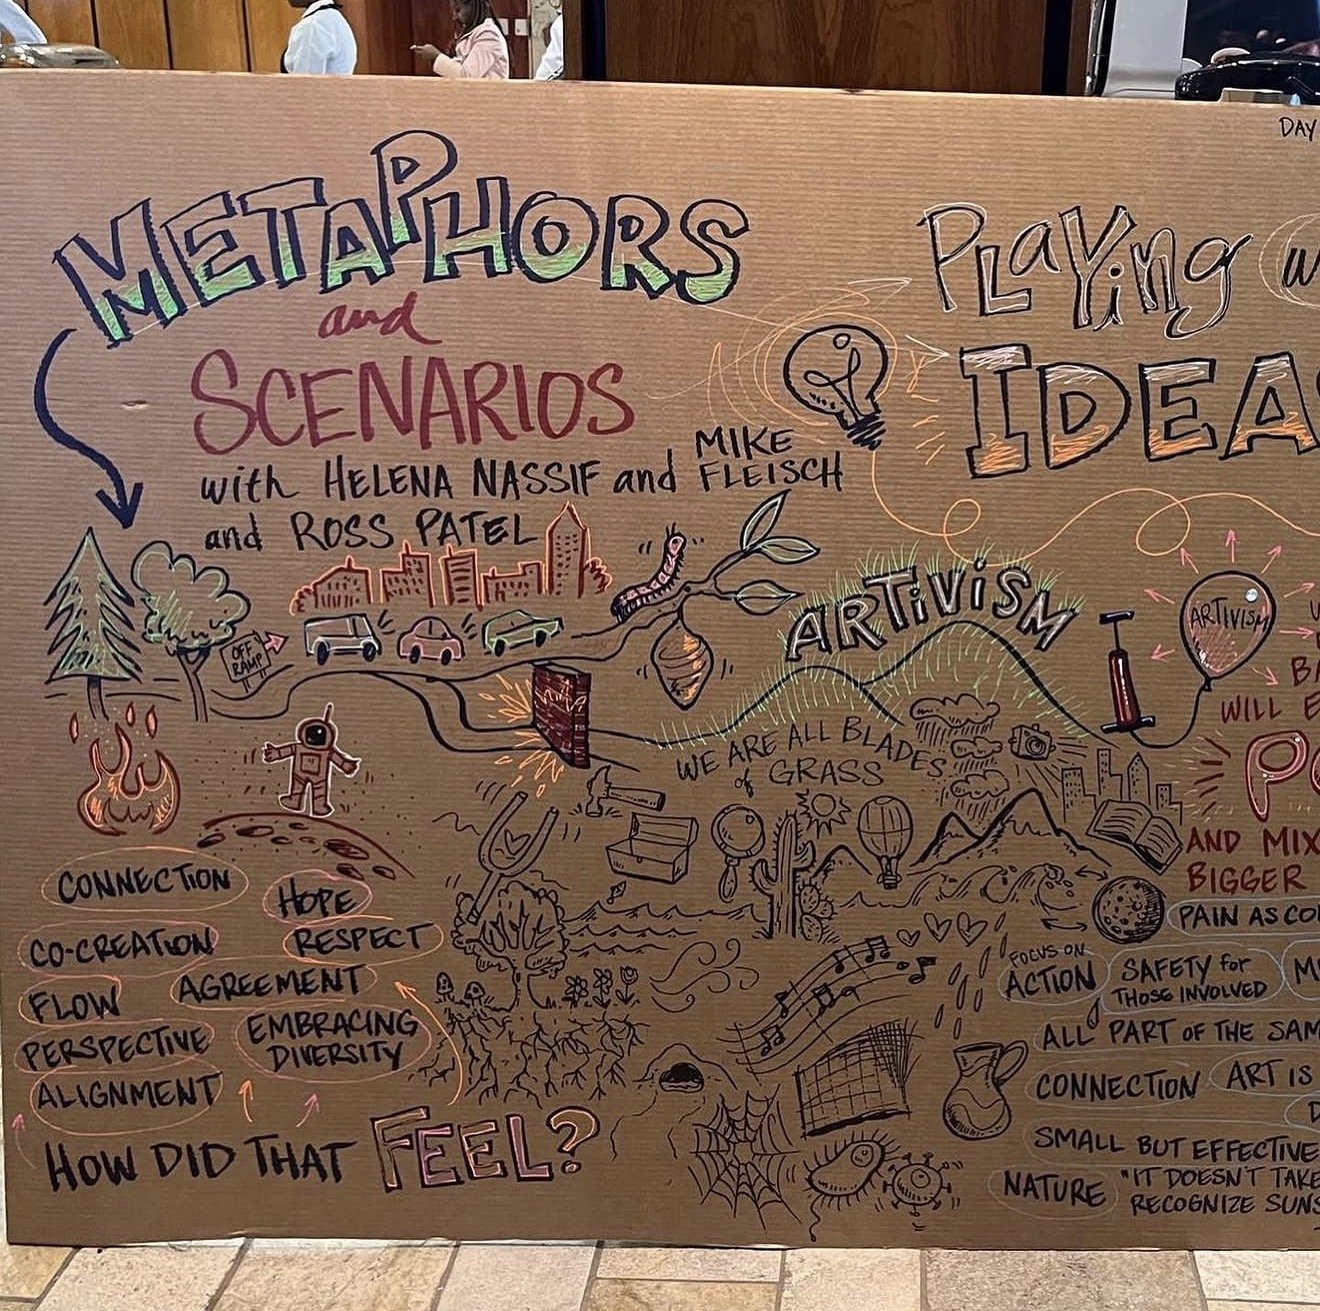 METAPHORS
and
SCENARIOS
with HELENA NASSIF and MIKE FLEISCH
and ROSS PATEL
OFF
RAMP
WE ARE ALL BLADES
of GRASS
CONNECTION
HOPE
CO-CREATION
RESPECT
FLOW
AGREEMENT
PERSPECTIVE
EMBRACING
DIVERSITY
ALIGNMENT
HOW DID THAT FEEL?
DAY
PLAYing
IDEAS
ARTiViSM
ARTIVISM
WILL
AND MIX
BIGGER
PAIN AS
FOCUS ON
ACTION
SAFETY for
THOSE INVOLVED
ALL PART OF THE
CONNECTION
ART IS
SMALL BUT EFFECTIVE
NATURE
"IT DOESN'T TAKE
RECOGNIZE